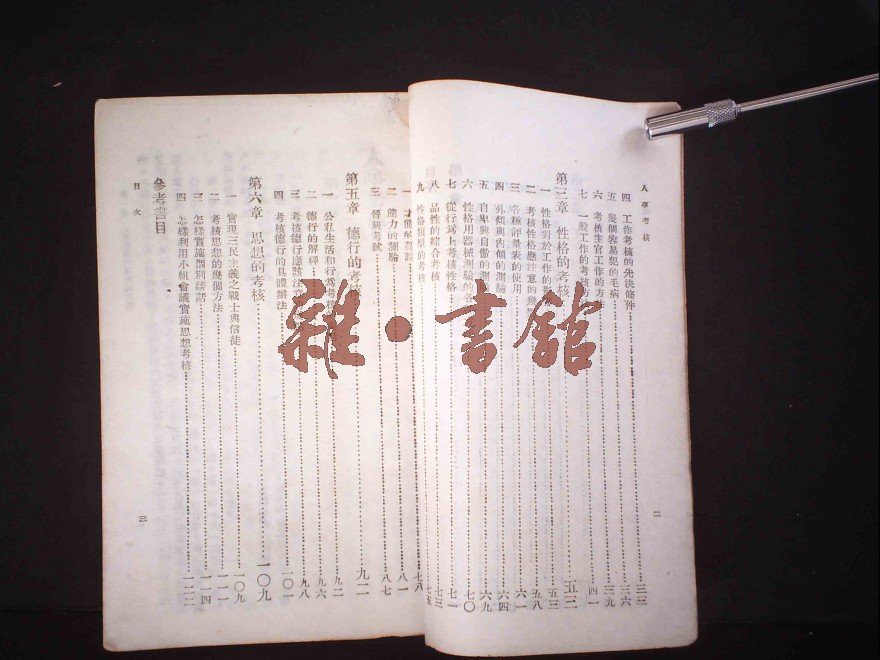 人事考核
四 工作考核的先決條件 三三
五 幾個容易犯的毛病 三六
六 考核主官工作的方法 三九
七 一般工作的考核方 四一
第三章 性格的考核 五三
一 性格對於工作的 五三
二 考核性格應注意的幾 五八
三 各種評量表的使用 六一
四 外傾與內傾的測驗 六四
五 自卑與自傲的測 六九
六 性格用器械測驗的 七〇
七 從行爲上考核性格 七一
八 品性的綜合考核 七三
九 性格類型的考核 七五
二
一 七八
二 能力的測驗 八一
三 晉級考試 八七
第五章 德行的考核 九二
一 公私生活和行爲考核 九二
二 德行的解釋 九六
三 考核德行應該注意 九八
四 考核德行的具體辦法 一〇一
第六章 思想的考核 一〇九
一 實現三民主義之戰士與信徒 一〇九
二 考核思想的幾個方法 一一一
三 怎樣實施個別談話 一一四
四 怎樣利用小組會議實施思想考核 一二二
參考書目
目次
三
雜·書館